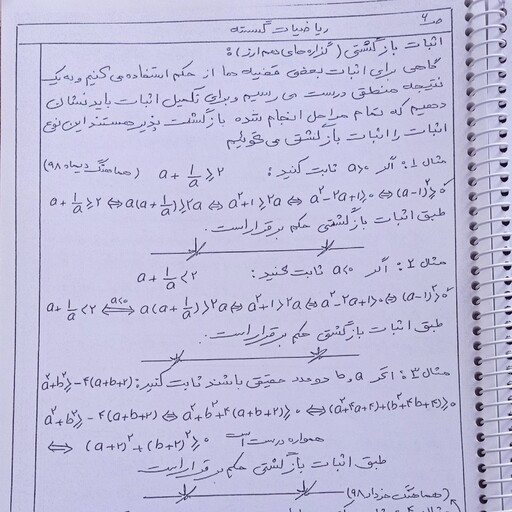 ص ۶
ریاضیات گسسته
اثبات بازگشتی (گزاره‌های هم ارز):
گاهی برای اثبات بعضی قضیه ها از حکم استفاده می کنیم و به یک
نتیجه منطقی درست می رسیم و برای تکمیل اثبات باید نشان
دهیم که تمام مراحل انجام شده بازگشت پذیر هستند این نوع
اثبات را اثبات بازگشتی می گوییم
مثال ۱: اگر a>۰ ثابت کنید: a + 1/a ≥ ۲ (هماهنگ دیماه ۹۸)
a + 1/a ≥ ۲ ⇔ a(a + 1/a) ≥ ۲a ⇔ a² + 1 ≥ ۲a ⇔ a² - ۲a + 1 ≥ ۰ ⇔ (a-1)² ≥ ۰
طبق اثبات بازگشتی حکم برقرار است.
مثال ۲: اگر a<۰ ثابت کنید: a + 1/a < ۲
a + 1/a < ۲ ⇔ a<۰ a(a + 1/a) > ۲a ⇔ a² + 1 > ۲a ⇔ a² - ۲a + 1 > ۰ ⇔ (a-1)² > ۰
طبق اثبات بازگشتی حکم برقرار است.
مثال ۳: اگر a و b دو عدد حقیقی باشند ثابت کنید: a² + b² ≥ -۴(a+b+۲)
a² + b² ≥ -۴(a+b+۲) ⇔ a² + b² + ۴(a+b+۲) ≥ ۰ ⇔ (a² + ۴a + ۴) + (b² + ۴b + ۴) ≥ ۰
⇔ (a+۲)² + (b+۲)² ≥ ۰ همواره درست است
طبق اثبات بازگشتی حکم برقرار است
(هماهنگ خرداد ۹۸)